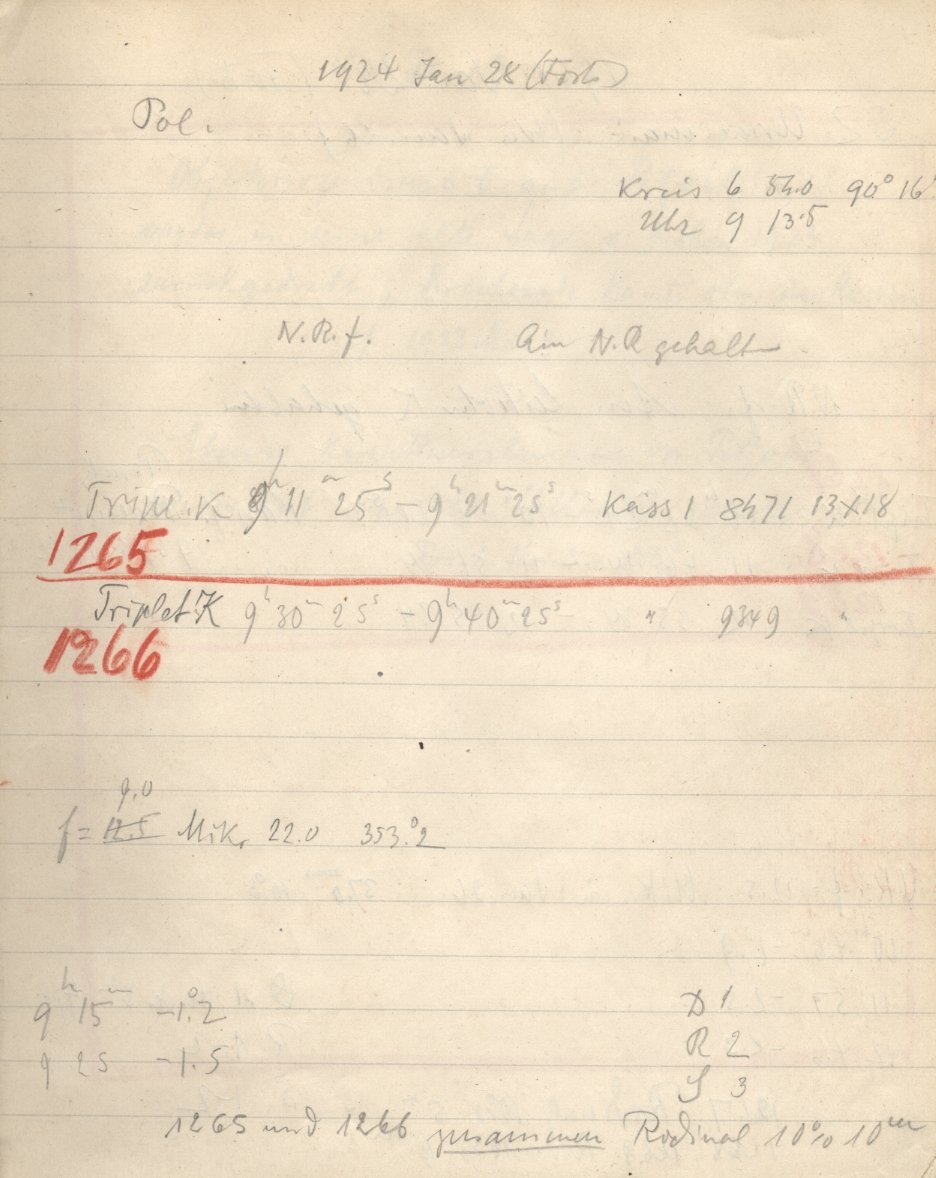 1924 Jan 28 (Forts)
Pol.
Kreis 6 54.0 90° 16'
Uhr 9 13.5
N.R.f. Am N.R gehalt
Tripl. K 9h 11m 25s – 9h 21m 25s Kass 1 8471 13x18
1265
Triplet K 9h 30m 25s – 9h 40m 25s " 9349 "
1266
9.0
f = 12.5 Mik. 22.0 353.°2
9h 15m –1.°2 D 1
9 25 –1.5 R 2
S 3
1265 und 1266 zusammen Rodinal 10% 10m